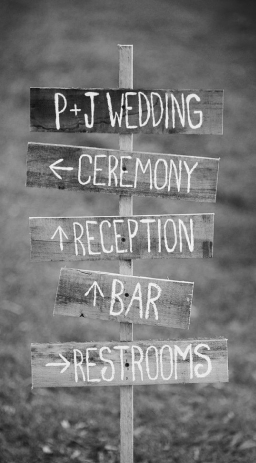 P+J WEDDING
← CEREMONY
↑ RECEPTION
↑ BAR
→ RESTROOMS